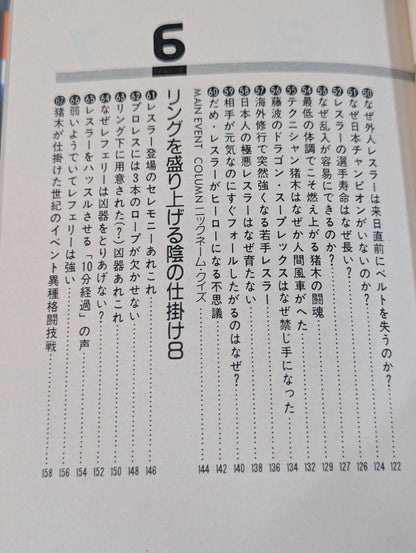 ㊿なぜ外人レスラーは来日直前にベルトを失うのか?……122
51なぜ日本チャンピオンがいないのか?……124
52レスラーの選手寿命はなぜ長い?……126
53なぜ乱入が容易にできるのか?……127
54最低の体調でこそ燃え上がる猪木の闘魂……129
55テクニシャン猪木はなぜか人間風車がへた……132
56藤波のドラゴン・スープレックスはなぜ禁じ手になった……134
57海外修行で突然強くなる若手レスラー……136
58日本人の極悪レスラーはなぜ育たない……138
59相手が元気なのにすぐフォールしたがるのはなぜ?……140
60だめ・レスラーがヒーローになる不思議……142
MAIN EVENT COLUMN ニックネーム・クイズ……144
6
リングを盛り上げる陰の仕掛け8
61レスラー登場のセレモニーあれこれ……146
62プロレスには3本のロープが欠かせない……148
63リング下に用意された(?)凶器あれこれ……150
64なぜレフェリーは凶器をとりあげない?……152
65レスラーをハッスルさせる「10分経過」の声……154
66弱いようでいてレフェリーは強い……156
67猪木が仕掛けた世紀のイベント異種格闘技戦……158